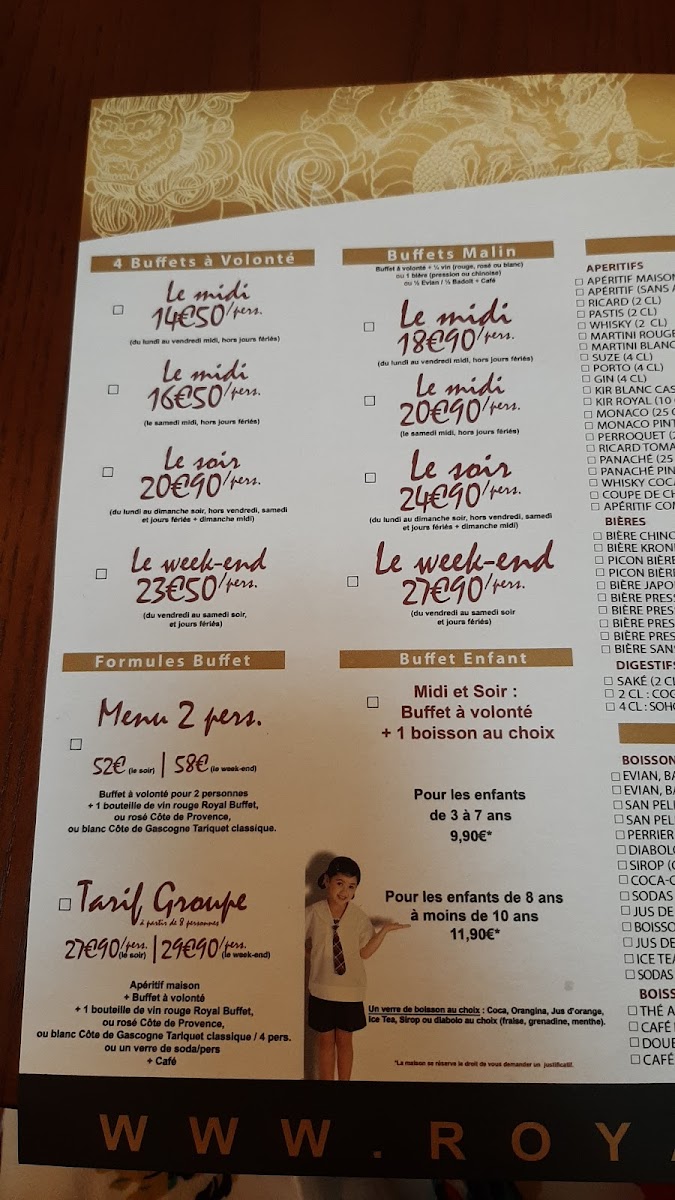 4 Buffets à Volonté
Le midi
14€50/pers.
(du lundi au vendredi midi, hors jours fériés)
Le midi
16€50/pers.
(le samedi midi, hors jours fériés)
Le soir
20€90/pers.
(du lundi au dimanche soir, hors vendredi, samedi
et jours fériés + dimanche midi)
Le week-end
23€50/pers.
(du vendredi au samedi soir,
et jours fériés)
Formules Buffet
Menu 2 pers.
52€ (le soir) | 58€ (le week-end)
Buffet à volonté pour 2 personnes
+ 1 bouteille de vin rouge Royal Buffet,
ou rosé Côte de Provence,
ou blanc Côte de Gascogne Tariquet classique.
Tarif Groupe
à partir de 8 personnes
27€90/pers. (le soir) | 29€90/pers. (le week-end)
Apéritif maison
+ Buffet à volonté
+ 1 bouteille de vin rouge Royal Buffet,
ou rosé Côte de Provence,
ou blanc Côte de Gascogne Tariquet classique / 4 pers.
ou un verre de soda/pers
+ Café
Buffets Malin
Buffet à volonté + ¼ vin (rouge, rosé ou blanc)
ou 1 bière (pression ou chinoise)
ou ½ Evian / ½ Badoit + Café
Le midi
18€90/pers.
(du lundi au vendredi midi, hors jours fériés)
Le midi
20€90/pers.
(le samedi midi, hors jours fériés)
Le soir
24€90/pers.
(du lundi au dimanche soir, hors vendredi, samedi
et jours fériés + dimanche midi)
Le week-end
27€90/pers.
(du vendredi au samedi soir
et jours fériés)
Buffet Enfant
Midi et Soir :
Buffet à volonté
+ 1 boisson au choix
Pour les enfants
de 3 à 7 ans
9,90€*
Pour les enfants de 8 ans
à moins de 10 ans
11,90€*
Un verre de boisson au choix : Coca, Orangina, Jus d'orange,
Ice Tea, Sirop ou diabolo au choix (fraise, grenadine, menthe).
*La maison se réserve le droit de vous demander un justificatif.
APERITIFS
APÉRITIF MAISON
APÉRITIF (SANS A
RICARD (2 CL)
PASTIS (2 CL)
WHISKY (2 CL)
MARTINI ROUGE
MARTINI BLANC
SUZE (4 CL)
PORTO (4 CL)
GIN (4 CL)
KIR BLANC CAS
KIR ROYAL (10
MONACO (25
MONACO PINT
PERROQUET (2
RICARD TOMA
PANACHÉ (25
PANACHÉ PIN
WHISKY COCA
COUPE DE CH
APÉRITIF COM
BIÈRES
BIÈRE CHINO
BIÈRE KRONE
PICON BIÈRE
PICON BIÈRE
BIÈRE JAPO
BIÈRE PRES
BIÈRE PRES
BIÈRE PRES
BIÈRE PRES
BIÈRE SAN
DIGESTIFS
SAKÉ (2 CL
2 CL : COG
4 CL : SOHO
BOISSON
EVIAN, BA
EVIAN, BA
SAN PELL
SAN PELL
PERRIER
DIABOLO
SIROP (
COCA-C
SODAS
JUS DE
BOISSO
JUS DE
ICE TEA
SODAS
BOISS
THÉ A
CAFÉ
DOUB
CAFÉ
WWW.ROYA